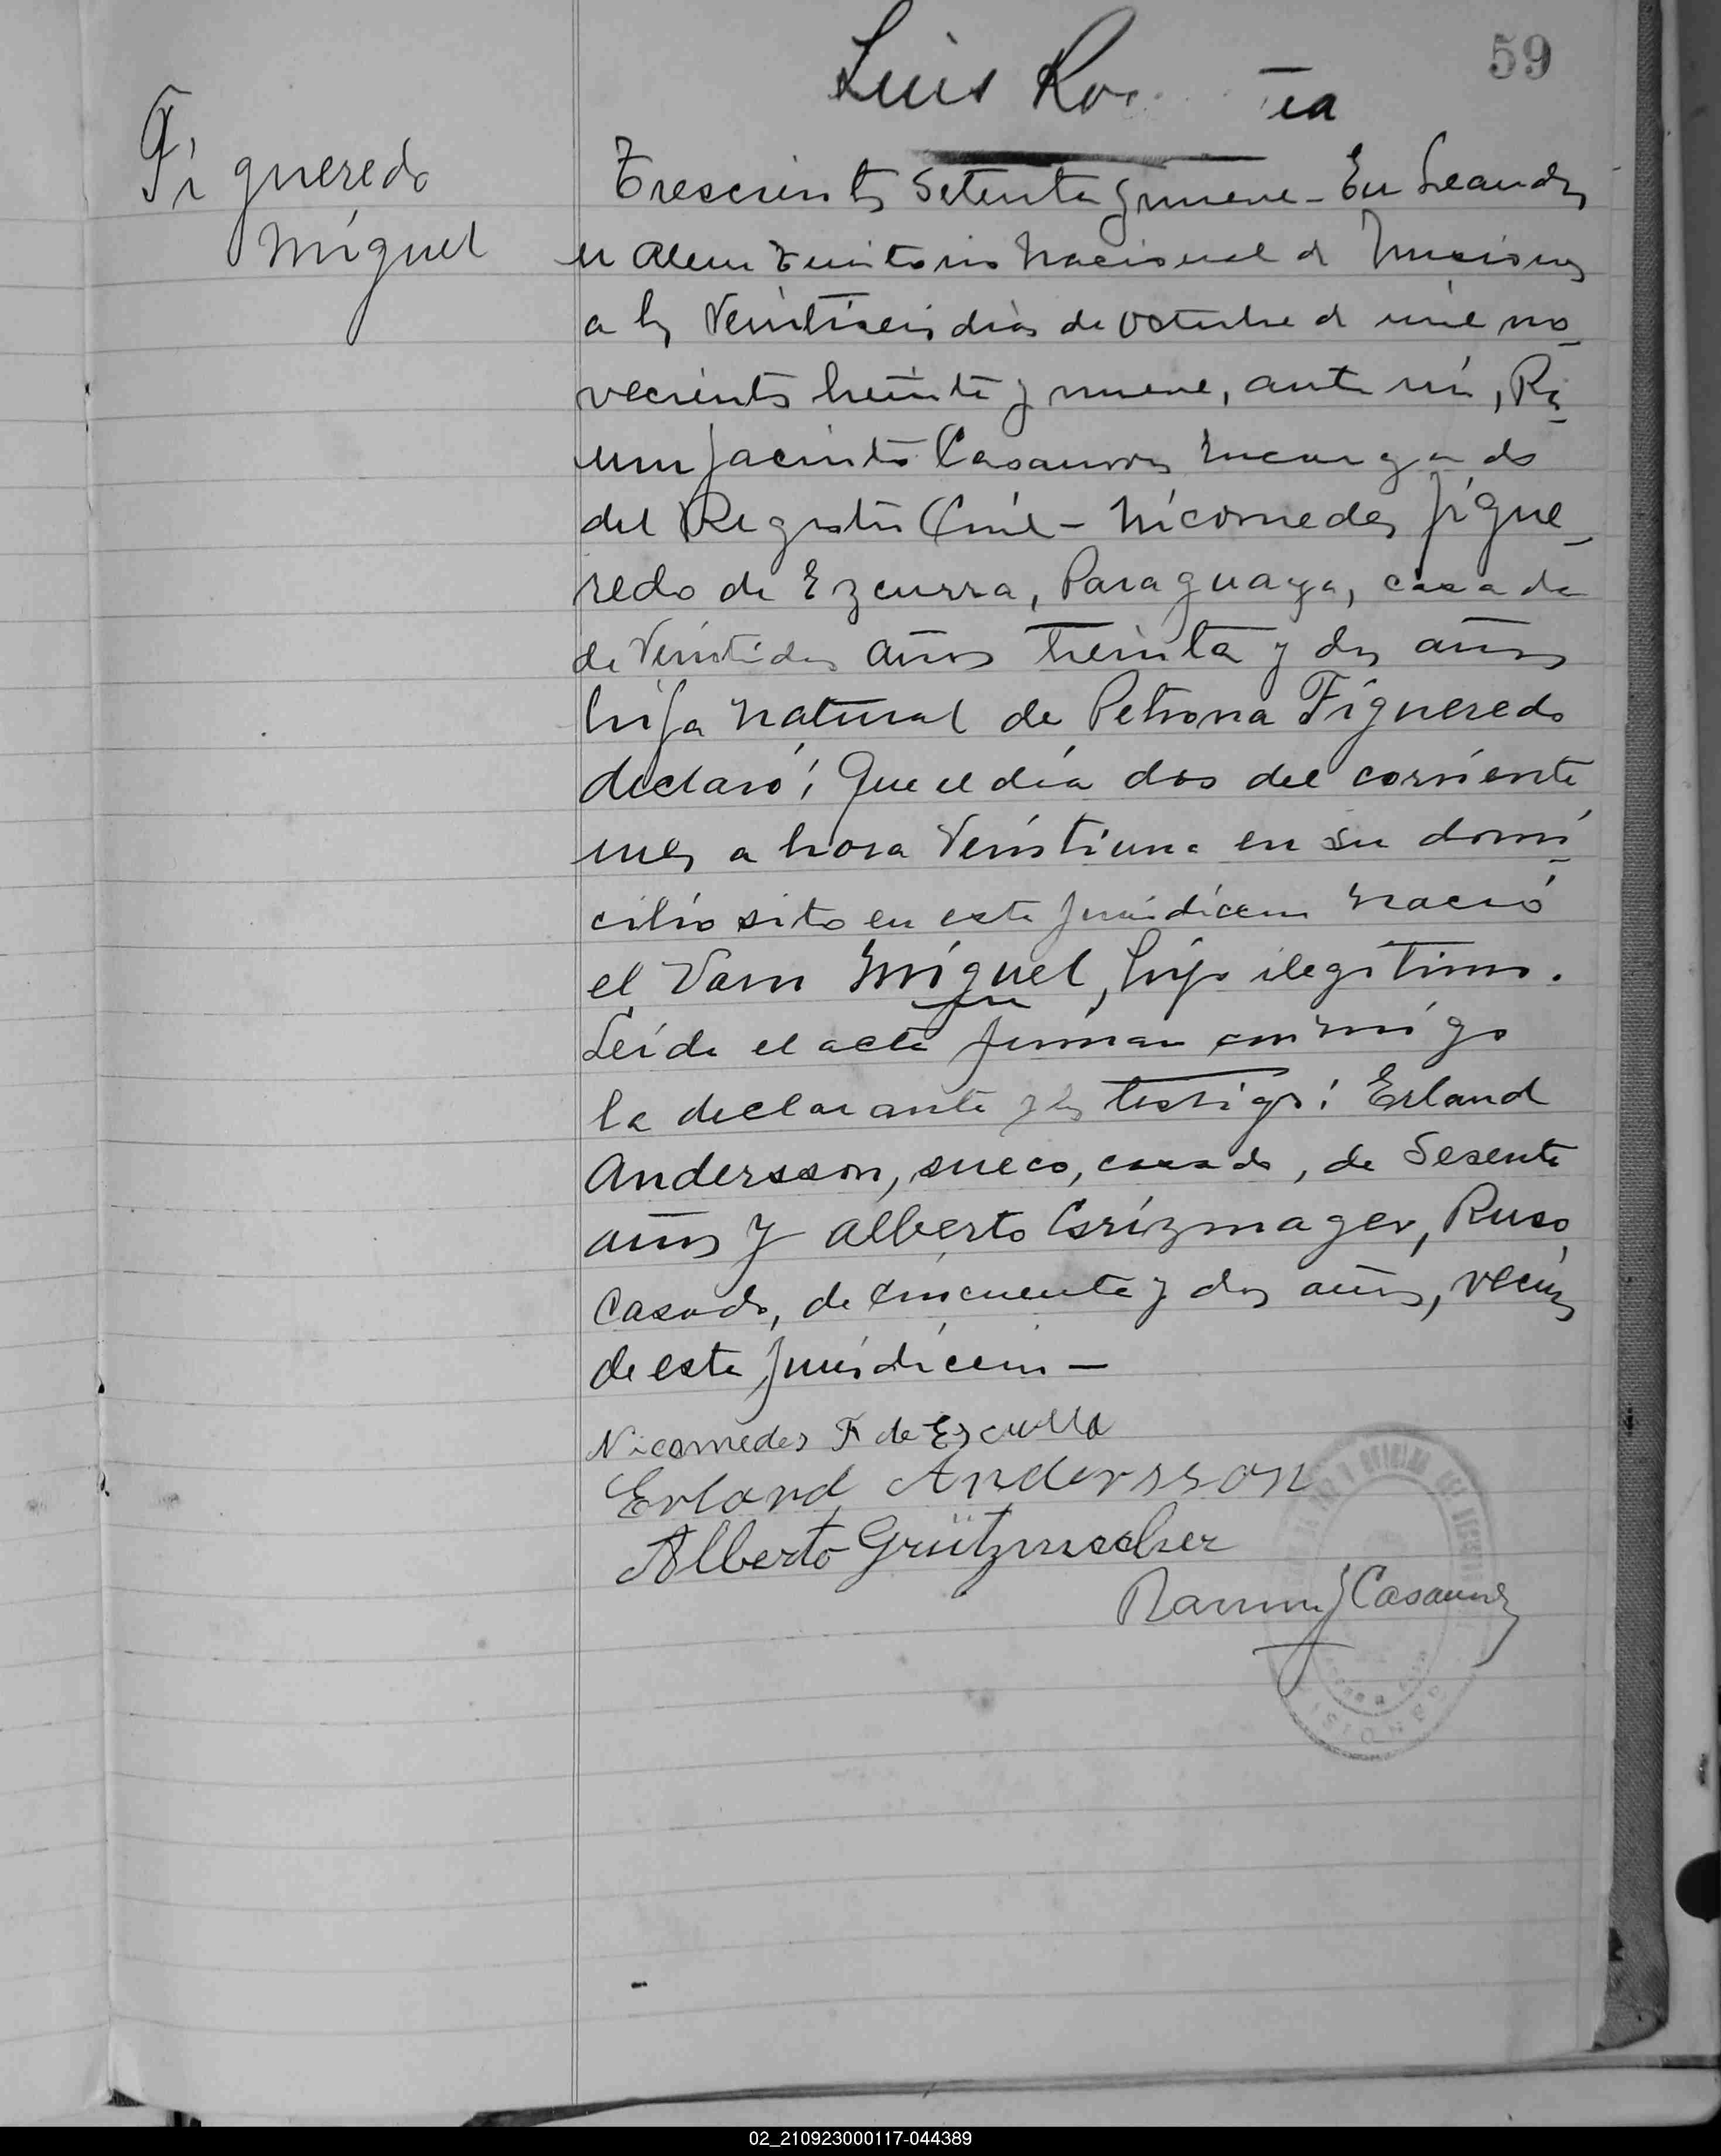 59
Luis
Figueredo
Miguel
Trescientos Setenta y nueve - En Leandro
N Alem Territorio Nacional de Misiones
a los Veintiseis dias de Octubre de mil no_
vecientos treinta y nueve, ante mi, Ra_
mon Jacinto Casanova Encargado
del Registro Civil - Nicomedes Figue_
redo de Ezcurra, Paraguaya, casada
de Veintidos años treinta y dos años
hija natural de Petrona Figueredo
declaró: Que el día dos del corriente
mes a hora Veintiuna en su domi_
cilio sito en esta Juridiccion nació
el Varon Miguel, hijo ilegitimo.
Leida el acta firman conmigo
la declarante y los testigos: Erland
Andersson, sueco, casado, de Sesenta
años y Alberto Grizmager, Ruso,
Casado, de cincuenta y dos años, vecinos
de esta Juridiccion -
Nicomedes F de Ezcurra
Erland Andersson
Alberto Grützmacher
Ramon J Casanova
MISIONES
02_210923000117-044389